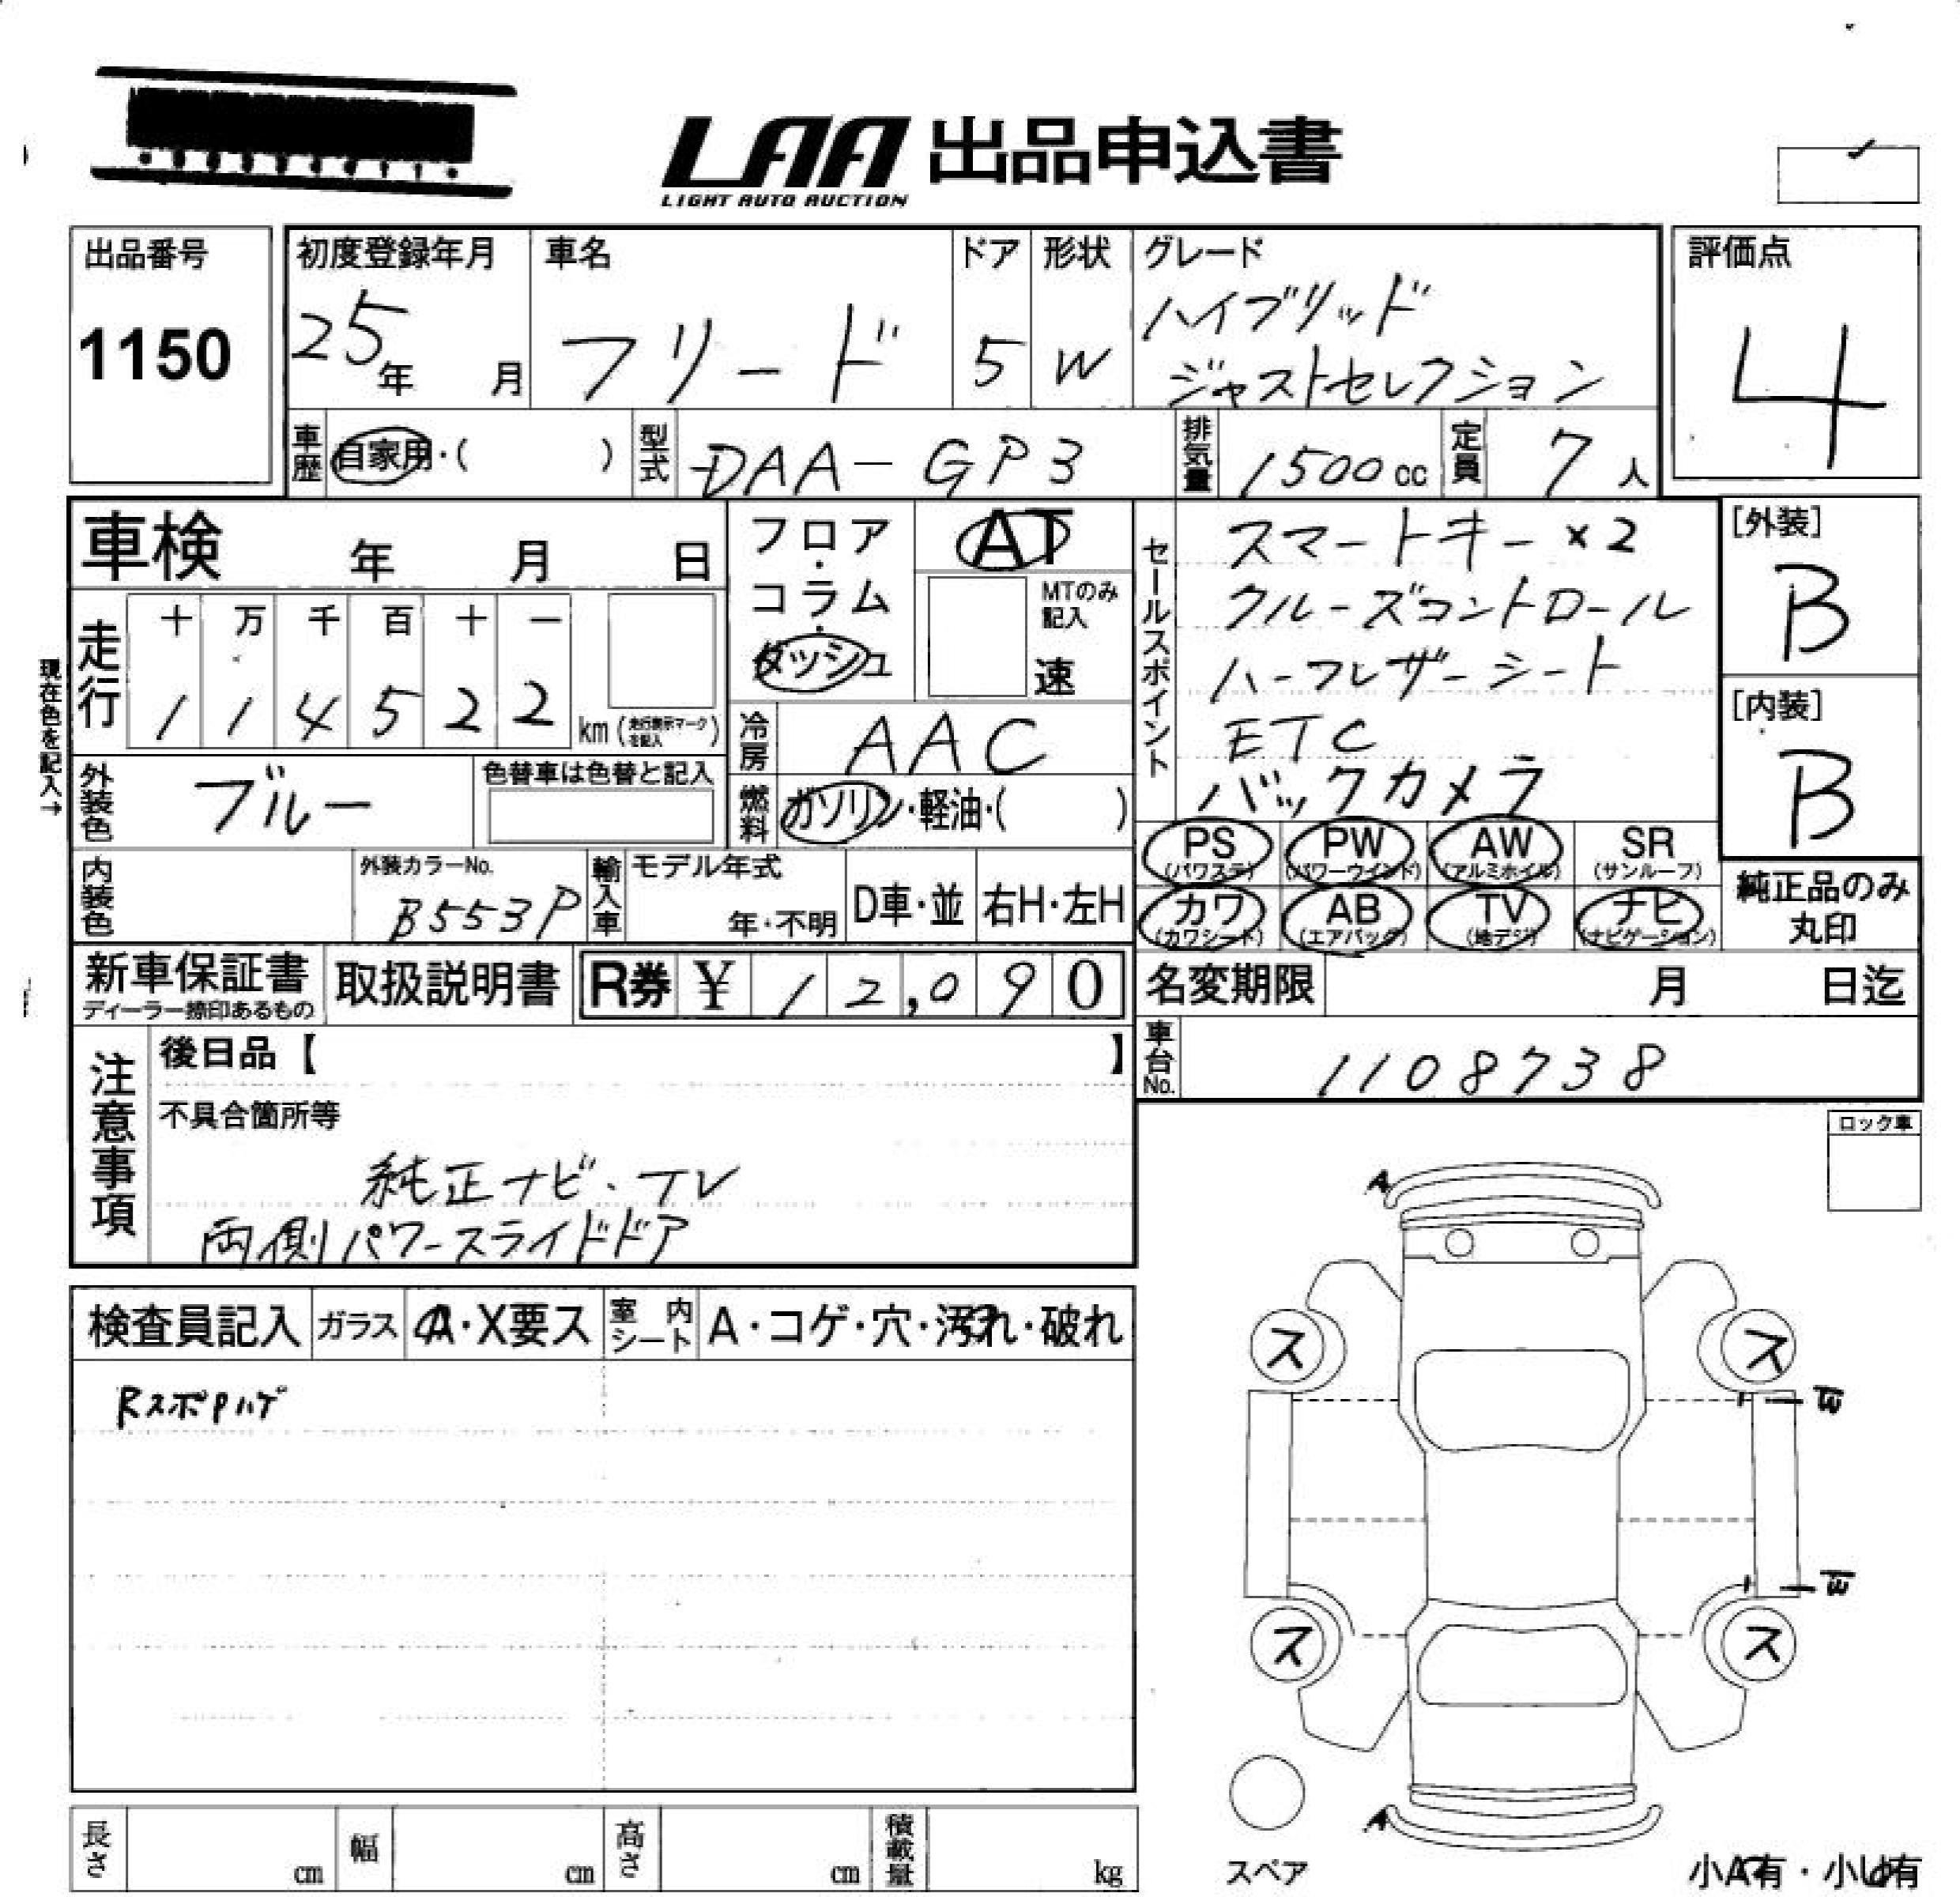 LAA 出品申込書
LIGHT AUTO AUCTION
出品番号
1150
初度登録年月
25年 月
車名
フリード
ドア
5
形状
W
グレード
ハイブリッド
ジャストセレクション
評価点
4
車歴 自家用・( )
型式 DAA-GP3
排気量 1500cc
定員 7人
車検 年 月 日
フロア・コラム・ダッシュ
AT
MTのみ記入
速
セールスポイント
スマートキー×2
クルーズコントロール
ハーフレザーシート
ETC
バックカメラ
[外装]
B
[内装]
B
現在色を記入→
走行
十 万 千 百 十 一
1 1 4 5 2 2 km (走行表示マークを記入)
冷房 AAC
外装色 ブルー
色替車は色替と記入
燃料 ガソリン・軽油・( )
PS (パワステ)
PW (パワーウインド)
AW (アルミホイル)
SR (サンルーフ)
カワ (カワシート)
AB (エアバッグ)
TV (地デジ)
ナビ (ナビゲーション)
純正品のみ
丸印
内装色
外装カラーNo.
B553P
輸入車
モデル年式
年・不明
D車・並
右H・左H
新車保証書
ディーラー捺印あるもの
取扱説明書
R券 ¥ 12,090
名変期限 月 日迄
車台No. 1108738
注意事項
後日品【 】
不具合箇所等
純正ナビ・TV
両側パワースライドドア
ロック車
検査員記入
ガラス A・X要ス
室内シート A・コゲ・穴・汚れ・破れ
RスポPハゲ
A
ス ス
W
W
ス ス
A
スペア
小A有・小U有
長さ cm
幅 cm
高さ cm
積載量 kg